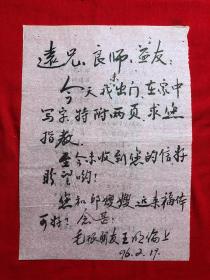 遠兄、良师、益友：
今天我未出门，在家中
写字特附两页，求您
指教。
至今未收到您的信好
盼望哟！
您和邱嫂嫂近来福体
可好？念甚！
毛根朋友王
上
96.2.17.